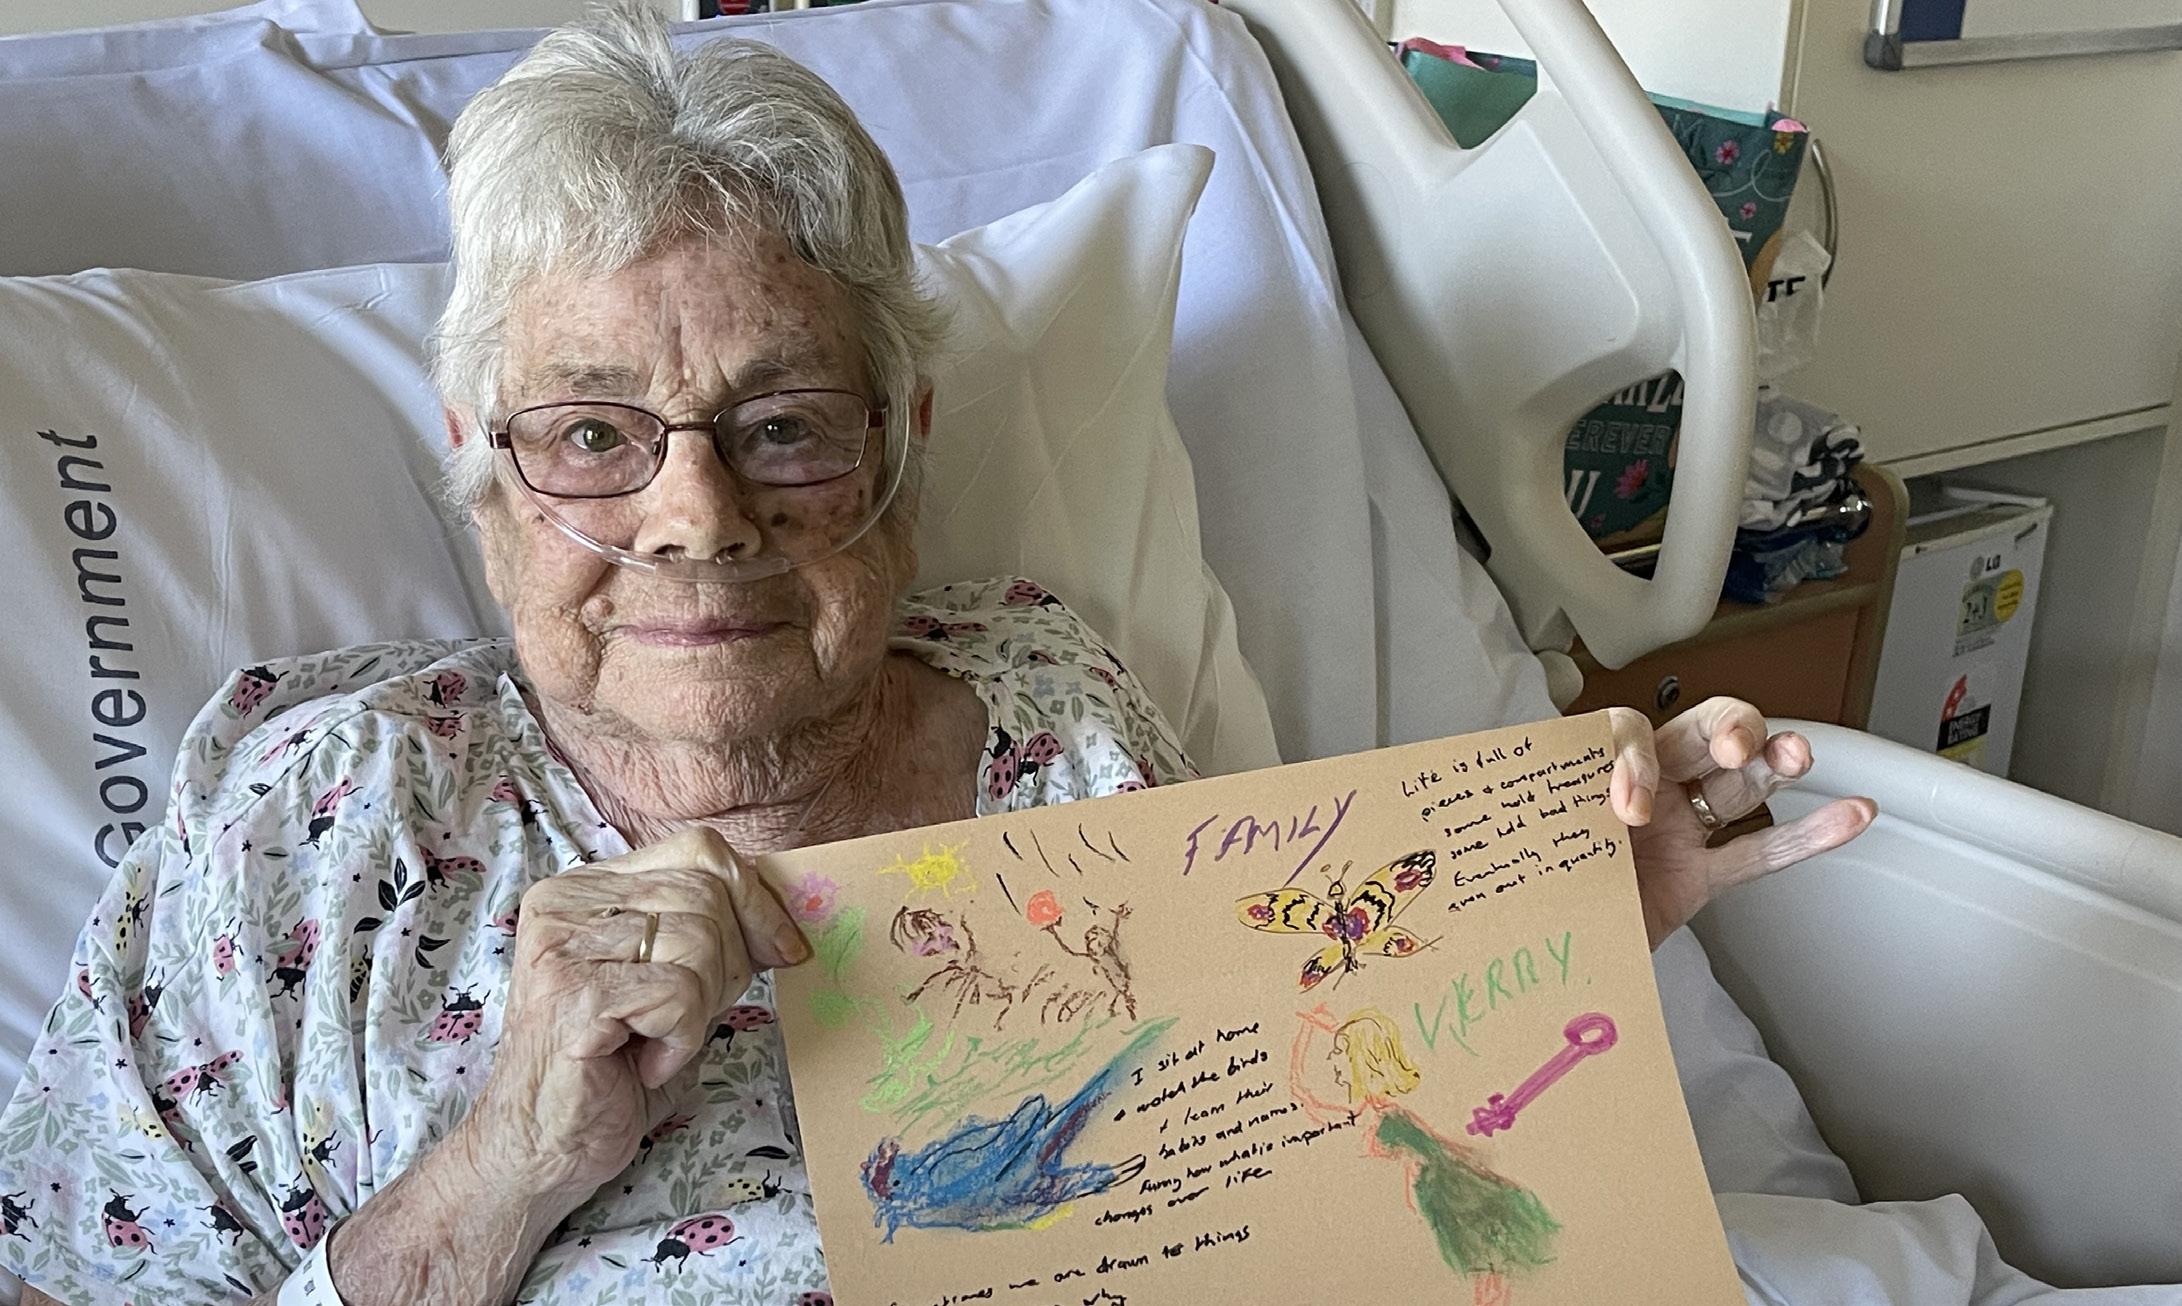 Government
TE
EREVER
U
LG
ENERGY
RATING
FAMILY
Life is full of
pieces & compartments
some hold treasures
some hold bad things
Eventually they
even out in quantity.
KERRY.
I sit at home
& watch the birds
& learn their
habits and names.
Funny how what is important
changes over life
we are drawn to things
why